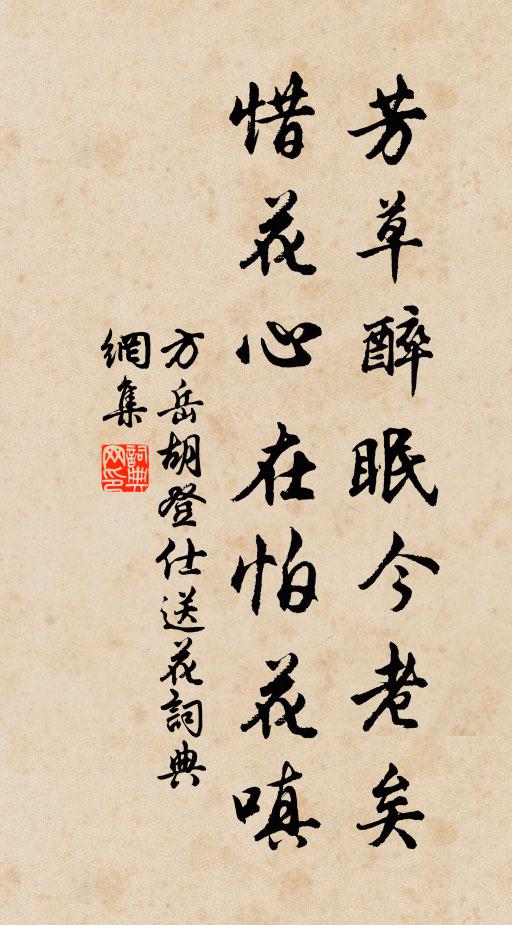 芳草醉眠今老矣
惜花心在怕花嗔
方岳胡登仕送花詞典
網集
詞典
网印